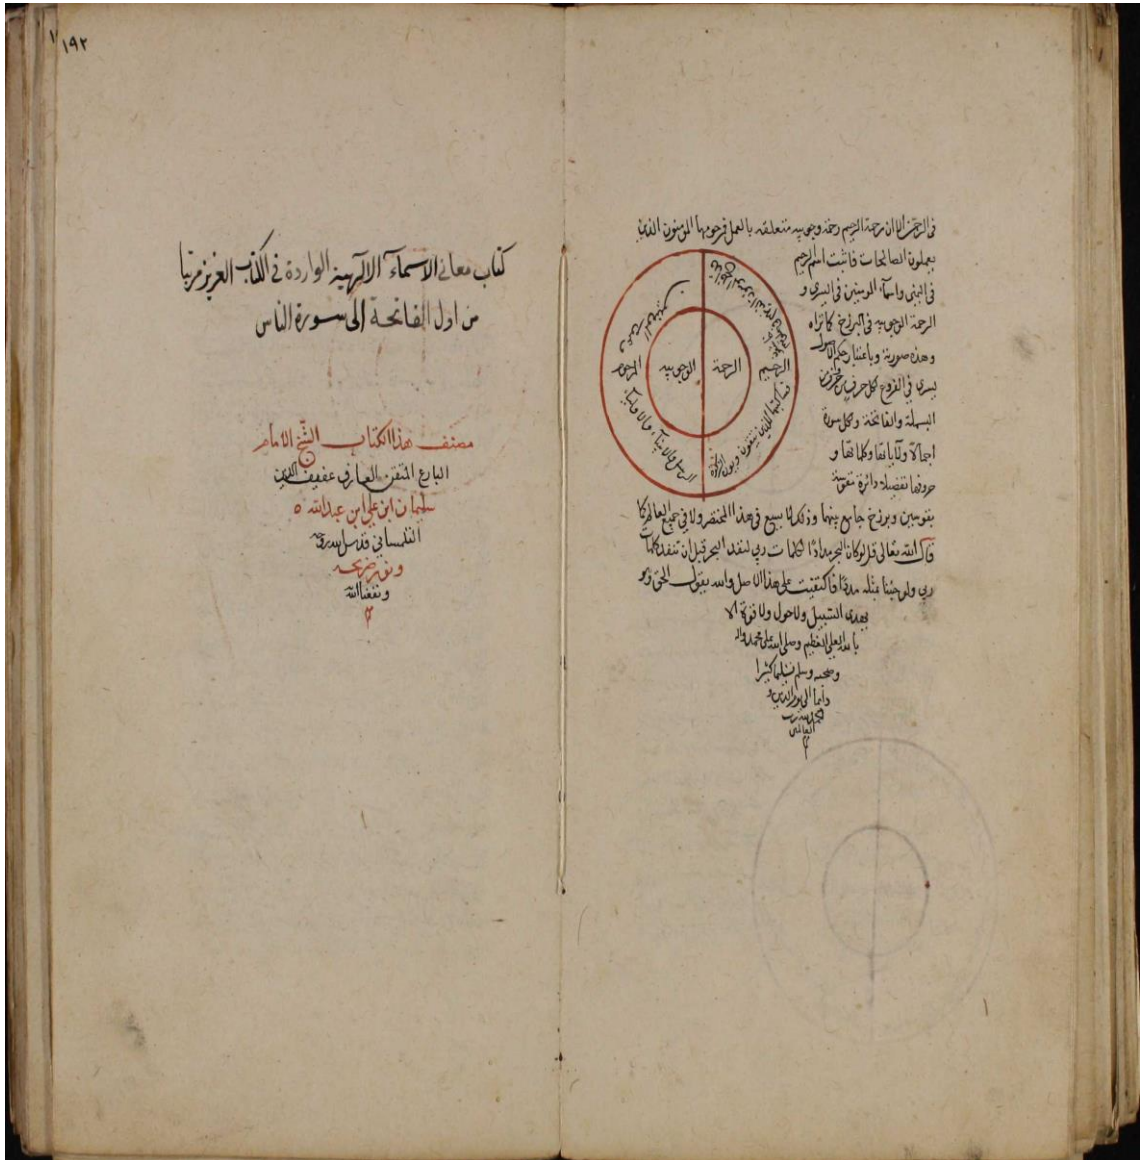 في الرحمن الا ان رحمة الرحيم رحمة وجوبيه متعلقه بالعمل فرحومها المومنون الذين
يعملون الصالحات فاثبت اسم الرحيم
في اليمنى واسماء المومنين في اليسرى و
الرحمة الوجوبيه في البرزخ كما تراه
وهذه صورته وباعتبار حكم الاصول
يسرى في الفروع كل حرف من حروف
البسملة والفاتحة وكل سورة
اجمالا ولآياتها وكلماتها و
حروفها تفصيلا دائرة تقوسة
بقوسين وبرزخ جامع بينهما وذلك لا يسع في هذا المختصر ولا في جميع العالم كما
قال الله تعالى قل لوكان البحر مدادًا لكلمات ربي لنفد البحر قبل ان تنفد كلمات
ربي ولو جئنا بمثله مددًا فاكتفيت على هذا الاصل والله يقول الحق وهو
يهدى السبيل ولا حول ولا قوة الا
بالله العلي العظيم وصلى الله على محمد واله
وصحبه وسلم تسليما كثيرا
دائما الى يوم الدين و
الحمد لله رب
العالمين
م
الرحيم
الرحمة
الوجوبيه
المرحوم
فساكتبها للذين يتقون ويوتون الزكوة
الرسل والانبياء والاولياء
١٩٢
كتاب معاني الاسماء الالهية الواردة في الكتاب العزيز مرتبا
من اول الفاتحة الى سورة الناس
مصنف هذا الكتاب الشيخ الامام
البارع المتقن العارف عفيف الدين
سليمان ابن علي ابن عبد الله ه
التلمساني قدس الله روحه
ونور ضريحه
ونفعنا الله
م